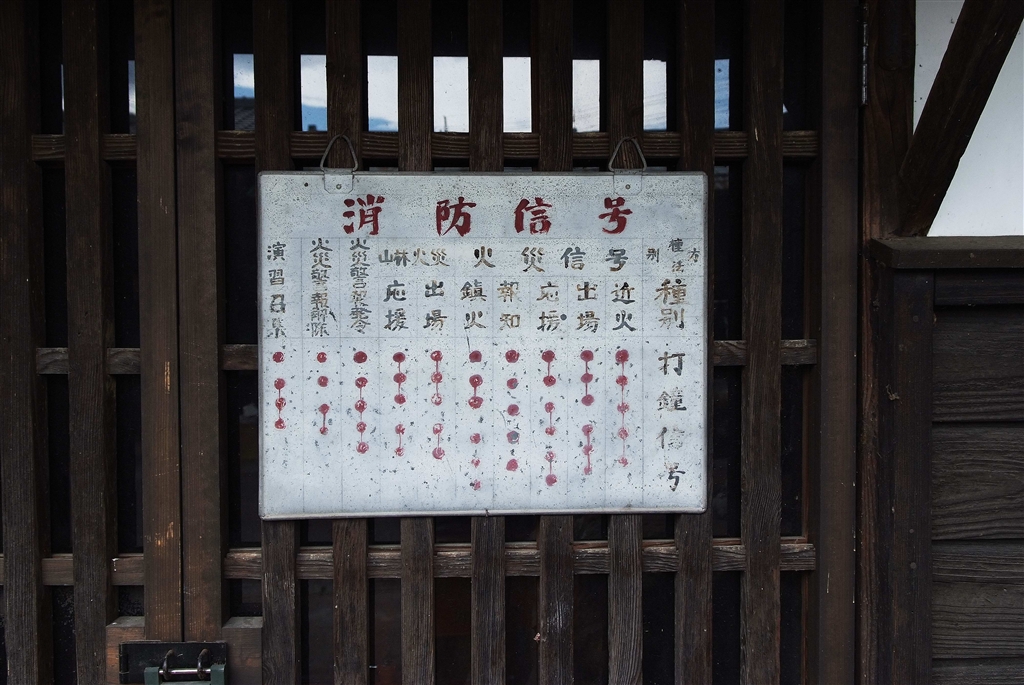 消防信号
方法
種別
火災信号
山林火災
種別
近火
出場
応援
報知
鎮火
出場
応援
火災警報発令
火災警報解除
演習召集
打鐘信号